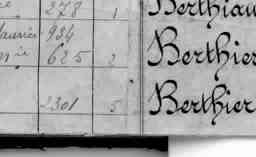 278 1 Berthiau
Maurice 934
625 2 Berthier
2301 5 Berthier